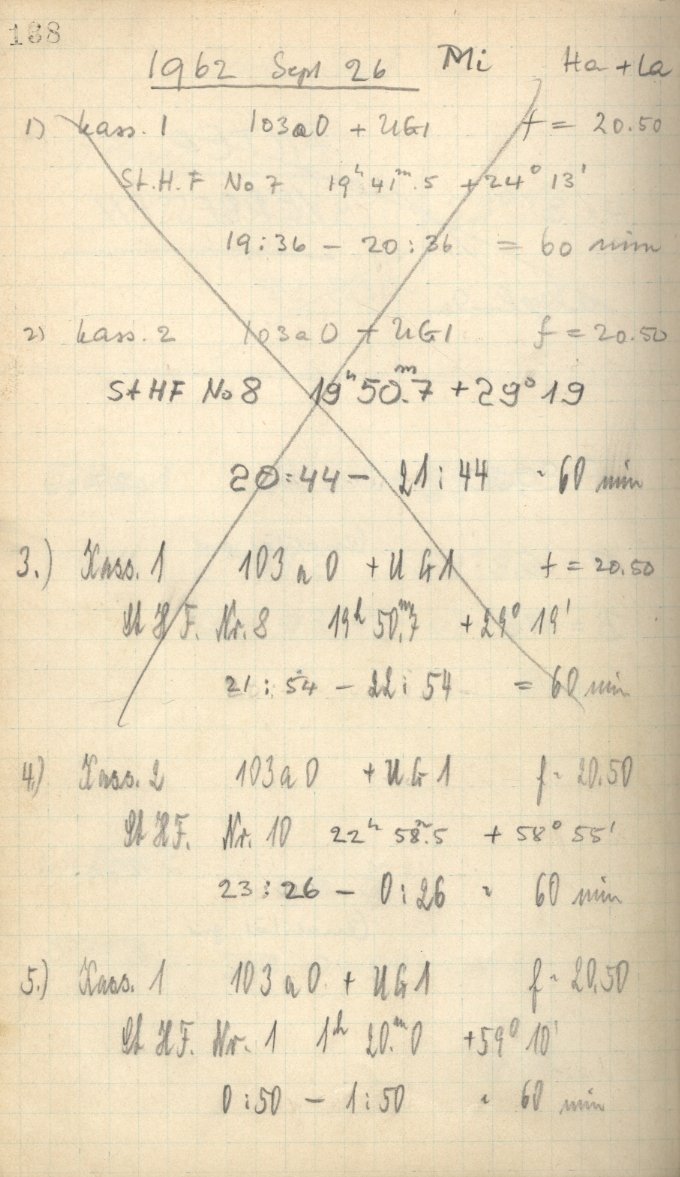 168
1962 Sept 26 Mi Ha + La
1) kass. 1 103a0 + UG1 f = 20.50
St.H.F No 7 19h 41m.5 +24° 13'
19:36 - 20:36 = 60 min
2) kass. 2 103a0 + UG1 f = 20.50
St HF No 8 19h 50m.7 +29° 19
20:44 - 21:44 = 60 min
3.) Kass. 1 103a0 + UG1 f = 20.50
St H F. Nr. 8 19h 50m.7 +29° 19'
21:54 - 22:54 = 60 min
4.) Kass. 2 103a0 + UG1 f = 20.50
St HF. Nr. 10 22h 58m.5 + 58° 55'
23:26 - 0:26 = 60 min
5.) Kass. 1 103a0 + UG1 f = 20.50
St HF. Nr. 1 1h 20m.0 +59° 10'
0:50 - 1:50 = 60 min